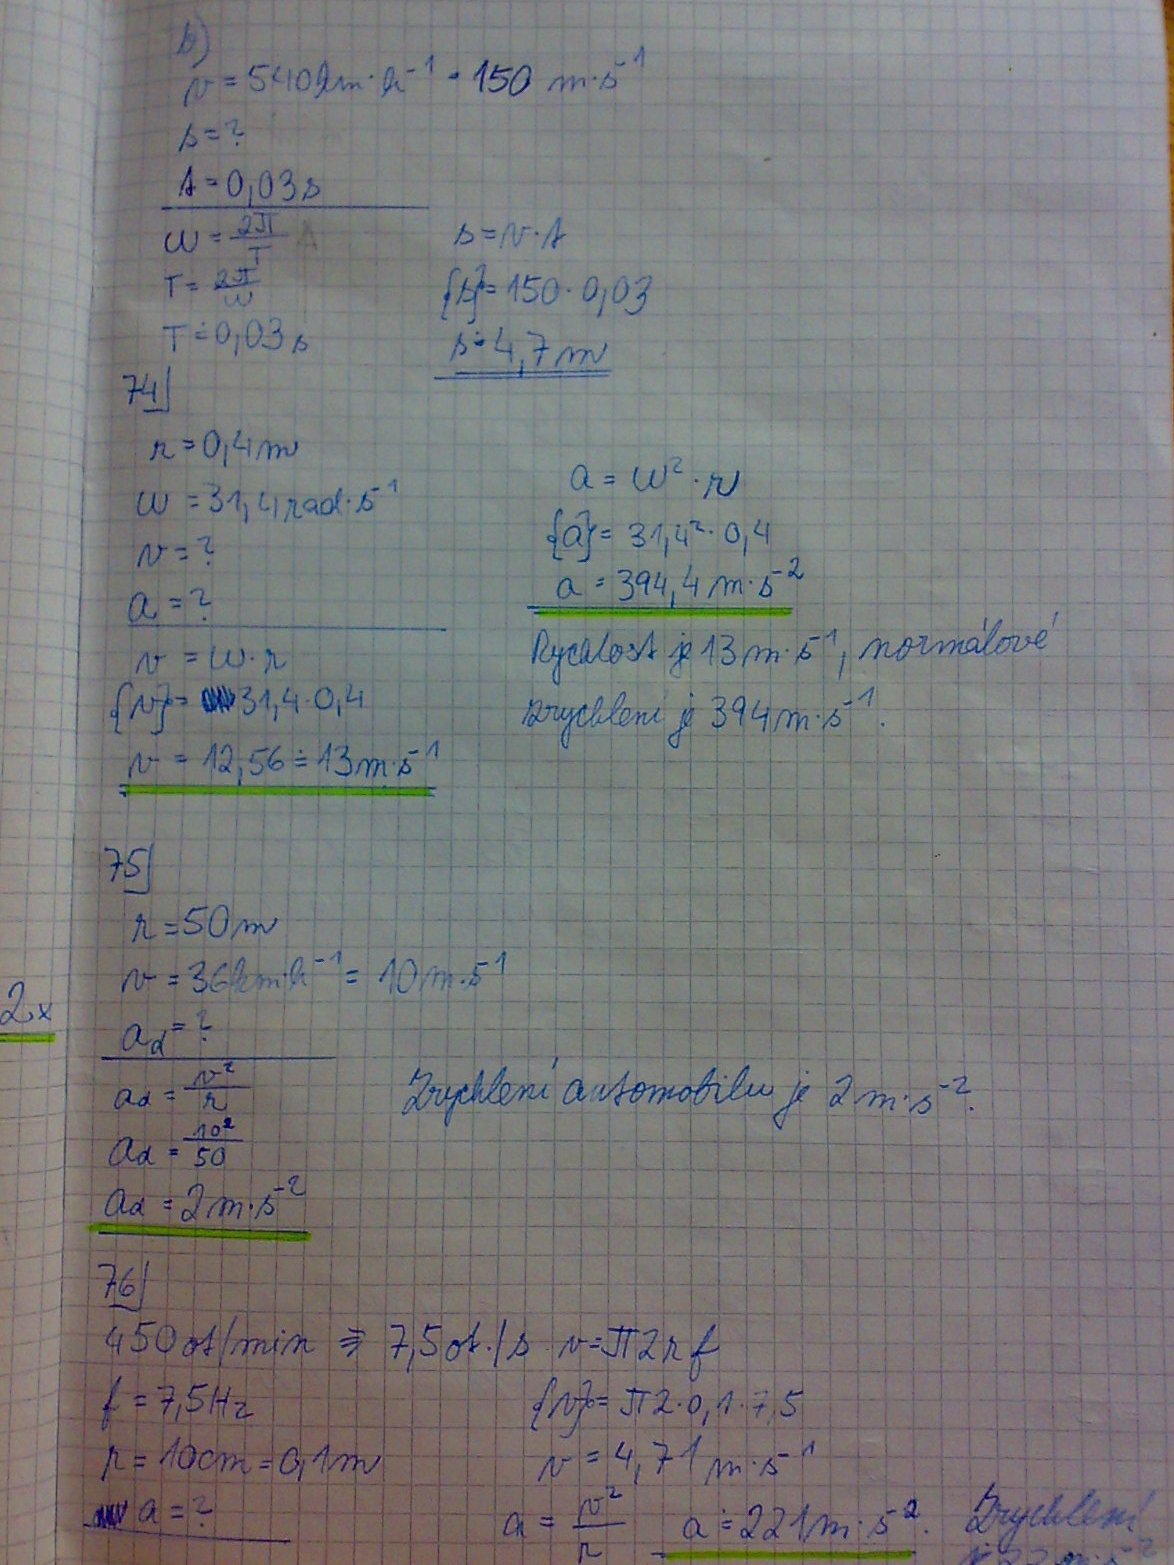 b)
v = 540 km·h⁻¹ = 150 m·s⁻¹
s = ?
t = 0,03 s
ω = 2π/T
T = 2π/ω
T ≐ 0,03 s
s = v·t
{s} = 150·0,03
s ≐ 4,7 m
74)
r = 0,4 m
ω = 31,4 rad·s⁻¹
v = ?
a = ?
v = ω·r
{v} = 31,4·0,4
v = 12,56 ≐ 13 m·s⁻¹
a = ω²·r
{a} = 31,4²·0,4
a = 394,4 m·s⁻²
Rychlost je 13 m·s⁻¹, normálové
zrychlení je 394 m·s⁻¹.
75)
r = 50 m
v = 36 km·h⁻¹ = 10 m·s⁻¹
a_d = ?
2x
a_d = v²/r
a_d = 10²/50
a_d = 2 m·s⁻²
Zrychlení automobilu je 2 m·s⁻².
76)
450 ot/min ⇒ 7,5 ot./s
f = 7,5 Hz
r = 10 cm = 0,1 m
a = ?
v = π2rf
{v} = π2·0,1·7,5
v = 4,71 m·s⁻¹
a = v²/r
a ≐ 221 m·s⁻².
Zrychlení